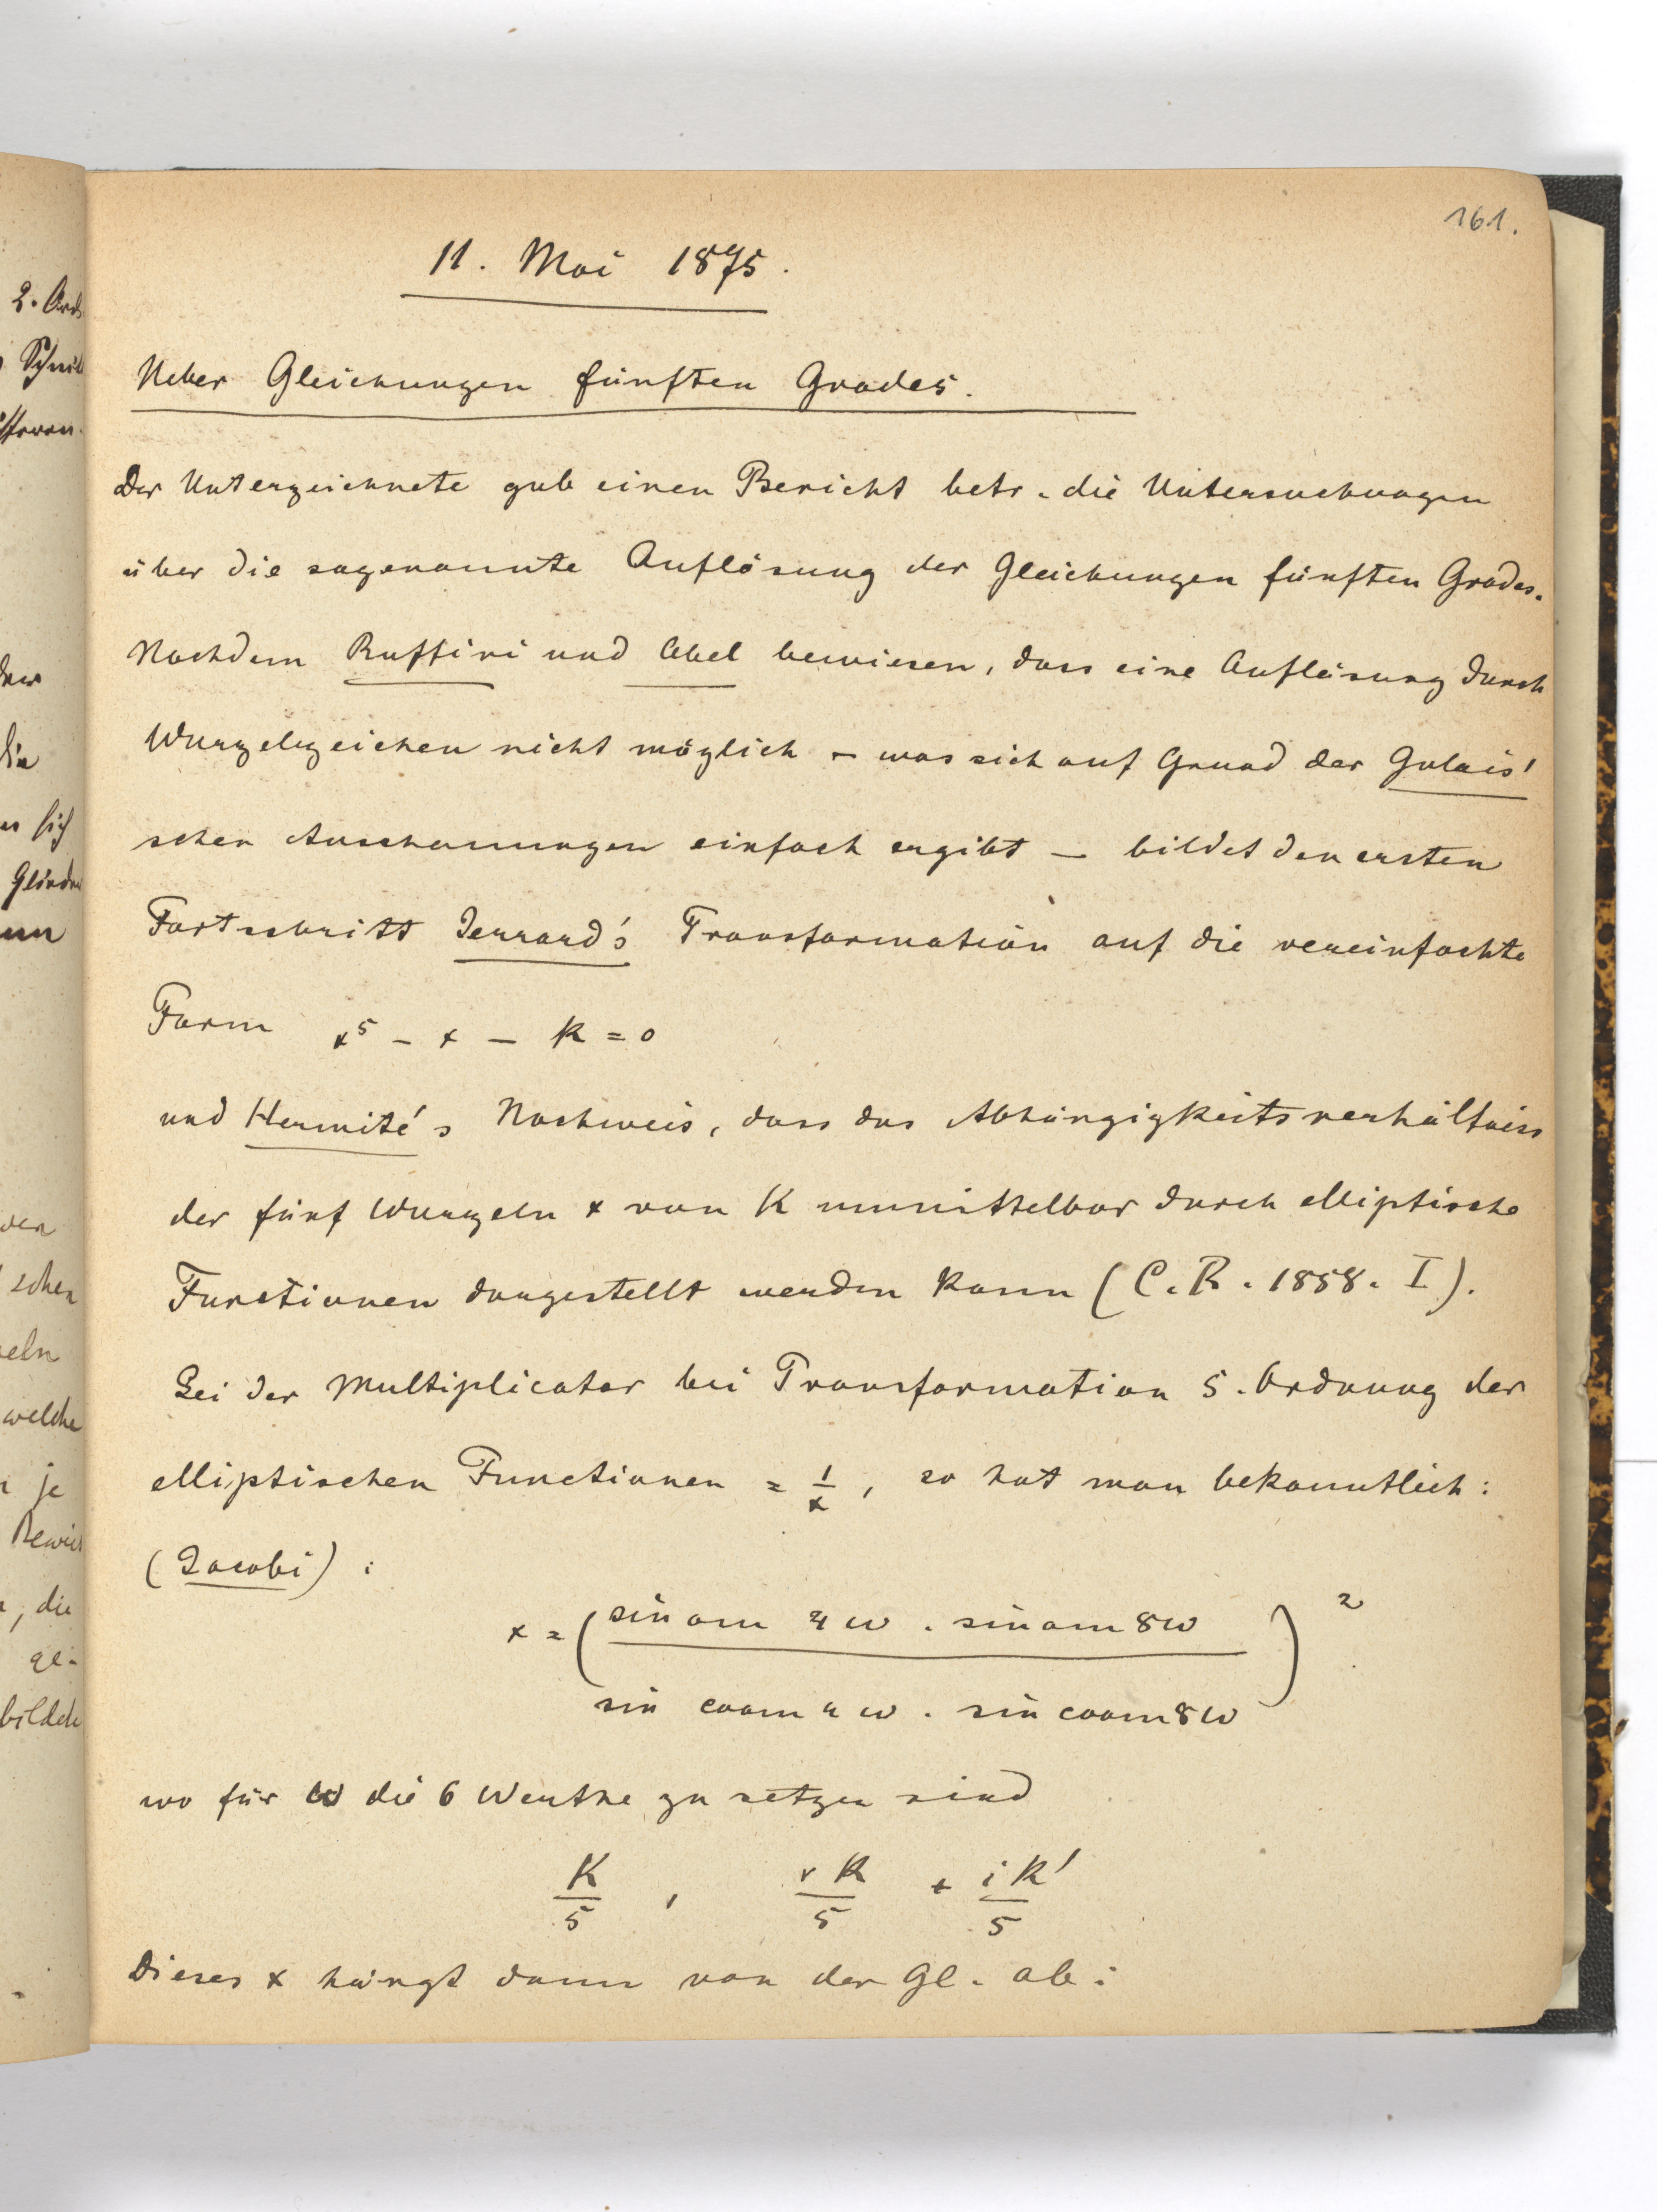 161.
11. Mai 1875.
Ueber Gleichungen fünften Grades.
Der Unterzeichnete gab einen Bericht betr. die Untersuchungen
über die sogenannte Auflösung der Gleichungen fünften Grades.
Nachdem Ruffini und Abel bewiesen, dass eine Auflösung durch
Wurzelzeichen nicht möglich – was sich auf Grund der Galois'
schen Anschauungen einfach ergibt – bildet den ersten
Fortschritt Jerrard's Transformation auf die vereinfachte
Form x⁵ – x – k = 0
und Hermité's Nachweis, dass das Abhängigkeitsverhältniss
der fünf Wurzeln x von K unmittelbar durch elliptische
Functionen dargestellt werden kann (C. R. 1858. I).
Sei der Multiplicator bei Transformation 5. Ordnung der
elliptischen Functionen = 1/x, so hat man bekanntlich:
(Jacobi):
x = (sin am 4ω . sin am 8ω / sin coam 4ω . sin coam 8ω)²
wo für ω die 6 Werthe zu setzen sind
K/5 , rK/5 + iK'/5
Dieses x hängt dann von der Gl. ab:
2. Ord
Schnitt
die
sich
schen
eln
welche
je
Bewei
, die
ge-
bilden